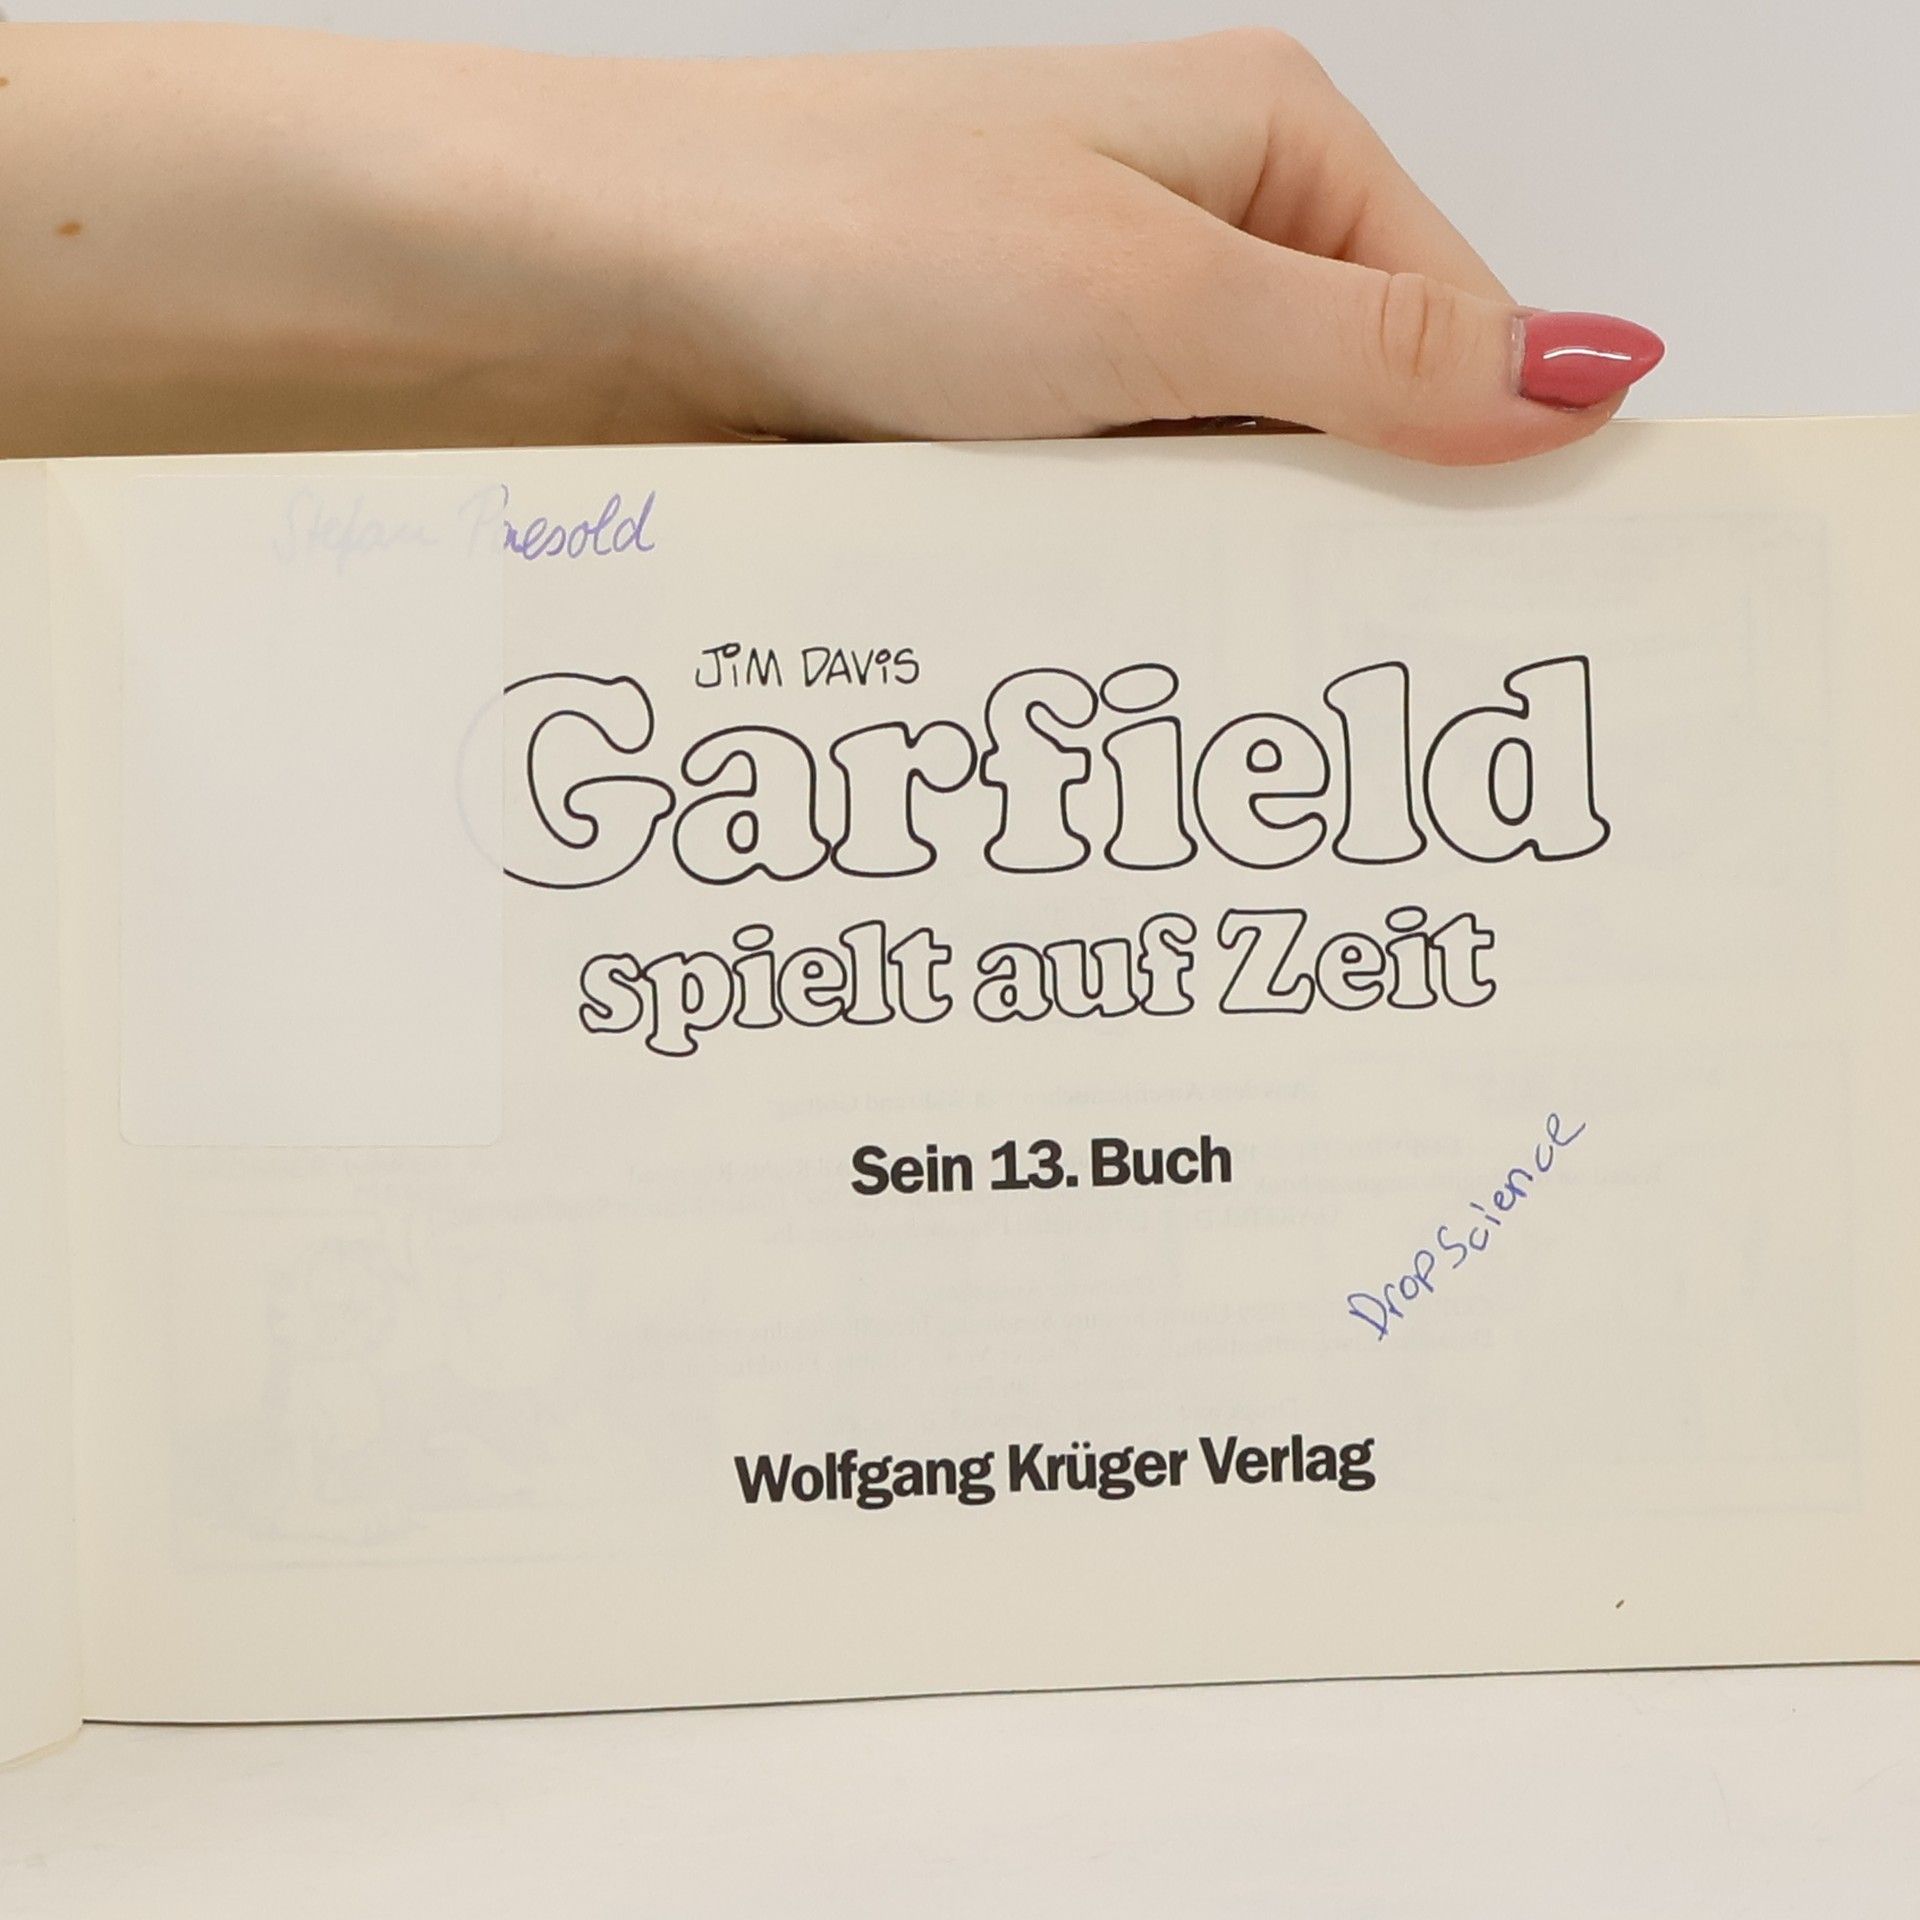 Stefan
JIM DAVIS
Garfield
spielt auf Zeit
Sein 13. Buch
Drop Science
Wolfgang Krüger Verlag